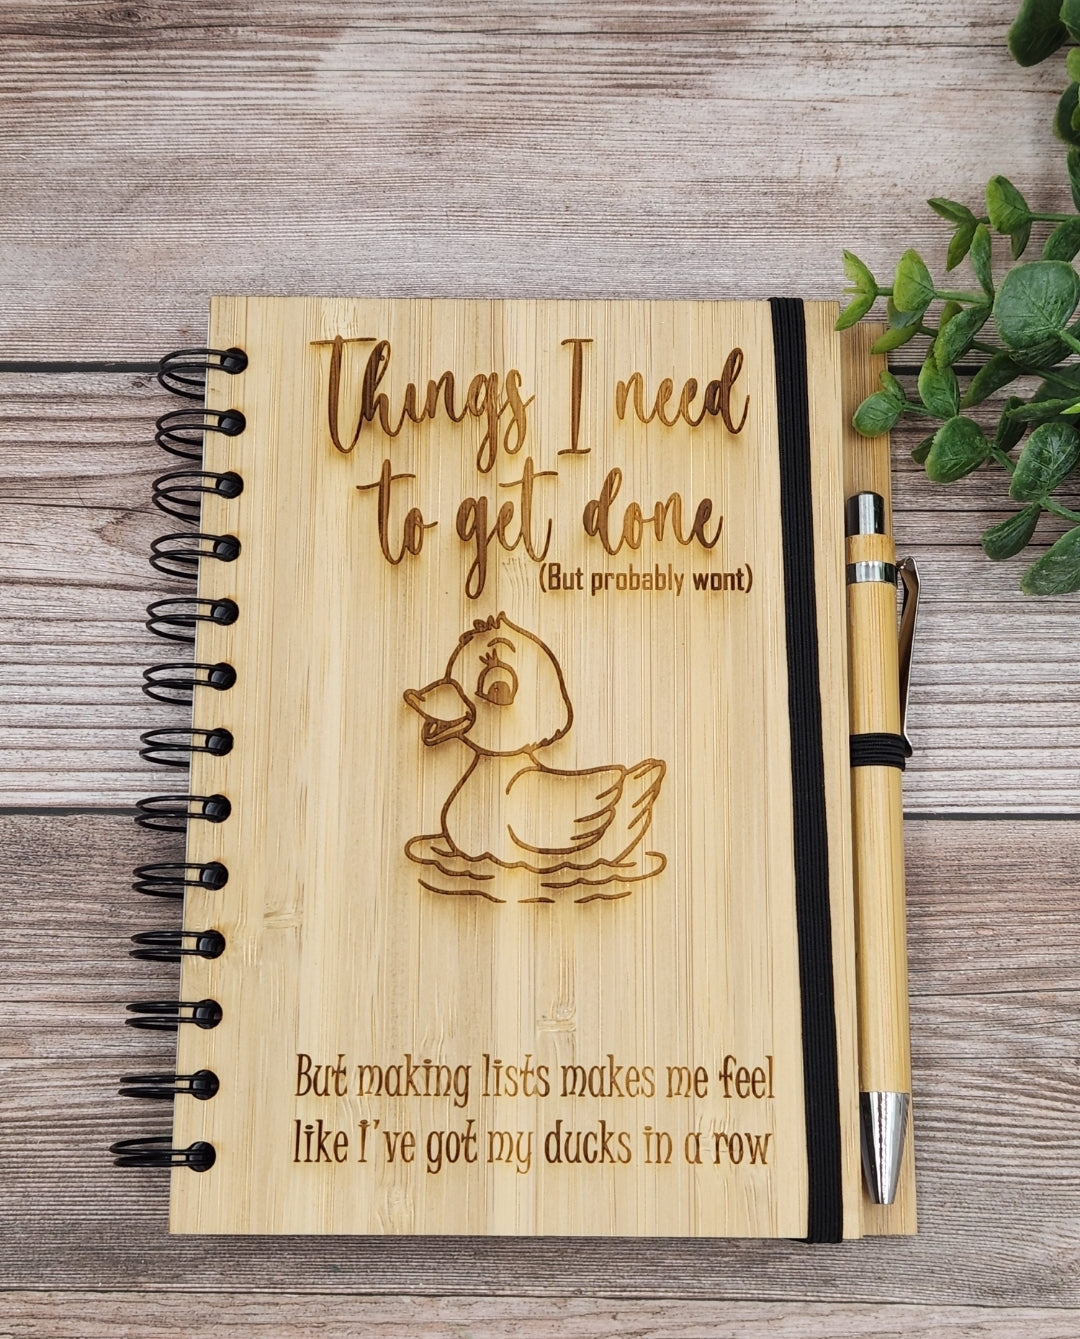 Things I need
to get done
(But probably wont)
But making lists makes me feel
like I've got my ducks in a row